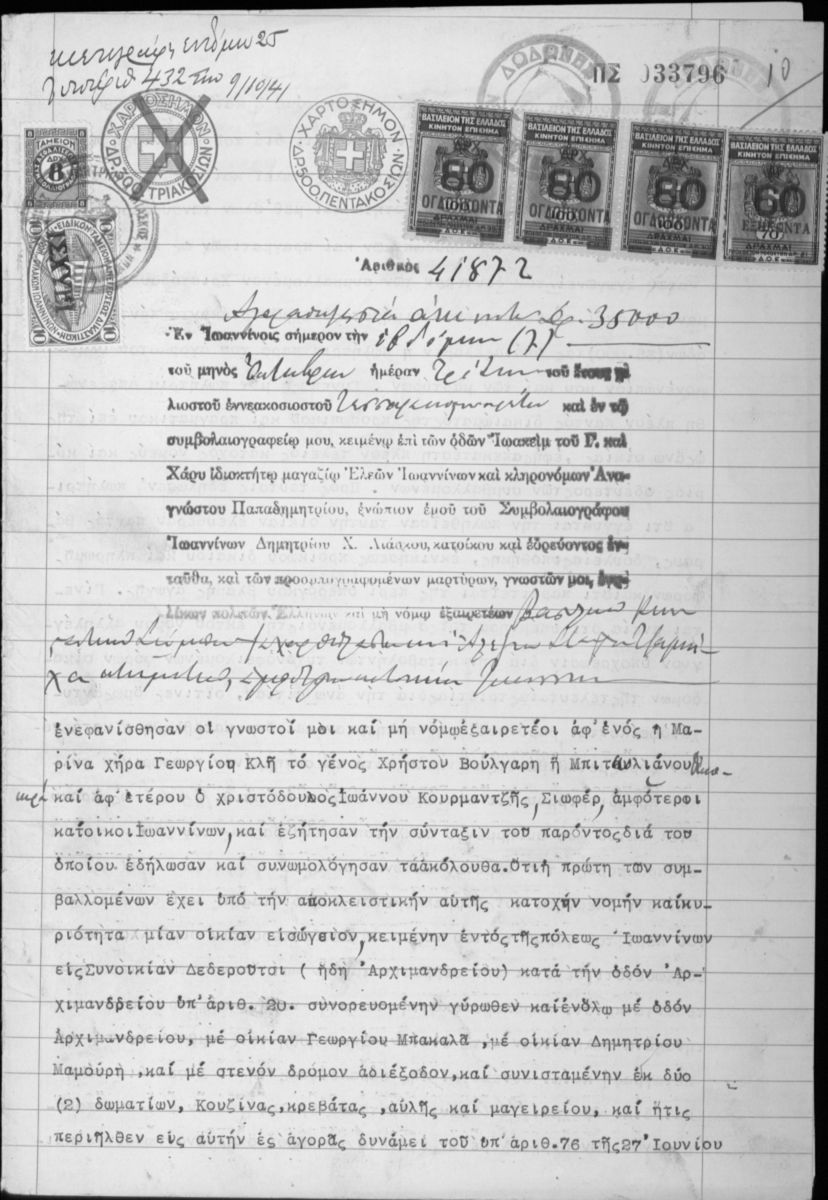 432 9/10/41
ΔΩΔΩΝΗ
ΠΣ 033796 10
ΤΑΜΕΙΟΝ
8
ΧΑΡΤΟΣΗΜΟΝ
ΔΡ. 300 ΤΡΙΑΚΟΣΙΩΝ
ΧΑΡΤΟΣΗΜΟΝ
ΔΡ. 500. ΠΕΝΤΑΚΟΣΙΩΝ
ΒΑΣΙΛΕΙΟΝ ΤΗΣ ΕΛΛΑΔΟΣ
ΚΙΝΗΤΟΝ ΕΠΙΣΗΜΑ
80
ΟΓΔΟΗΚΟΝΤΑ
100
ΔΡΑΧΜΑΙ
ΒΑΣΙΛΕΙΟΝ ΤΗΣ ΕΛΛΑΔΟΣ
ΚΙΝΗΤΟΝ ΕΠΙΣΗΜΑ
80
ΟΓΔΟΗΚΟΝΤΑ
100
ΔΡΑΧΜΑΙ
ΒΑΣΙΛΕΙΟΝ ΤΗΣ ΕΛΛΑΔΟΣ
ΚΙΝΗΤΟΝ ΕΠΙΣΗΜΑ
80
ΟΓΔΟΗΚΟΝΤΑ
100
ΔΡΑΧΜΑΙ
ΒΑΣΙΛΕΙΟΝ ΤΗΣ ΕΛΛΑΔΟΣ
ΚΙΝΗΤΟΝ ΕΠΙΣΗΜΑ
60
ΕΞΗΚΟΝΤΑ
70
ΔΡΑΧΜΑΙ
Ἀριθμὸς 41872
Ἀγοραπωλησία ἀκινήτου δρ. 35000
Ἐν Ἰωαννίνοις σήμερον τὴν ἑβδόμην (7)
τοῦ μηνὸς Ὀκτωβρίου ἡμέραν Τρίτην τοῦ ἔτους χι
λιοστοῦ ἐννεακοσιοστοῦ τεσσαρακοστοῦ πρώτου καὶ ἐν τῷ
συμβολαιογραφείῳ μου, κειμένῳ ἐπὶ τῶν ὁδῶν Ἰωακεὶμ τοῦ Γ. καὶ
Χάρυ ἰδιοκτήτῳ μαγαζίῳ Ἐλεῶν Ἰωαννίνων καὶ κληρονόμων Ἀνα-
γνώστου Παπαδημητρίου, ἐνώπιον ἐμοῦ τοῦ Συμβολαιογράφου
Ἰωαννίνων Δημητρίου Χ. Λιάσκου, κατοίκου καὶ ἑδρεύοντος ἐν-
ταῦθα, καὶ τῶν προσυπογραφομένων μαρτύρων, γνωστῶν μοι, ἐνη-
λίκων πολιτῶν Ἑλλήνων καὶ μὴ νόμῳ ἐξαιρετέων
ἐνεφανίσθησαν οἱ γνωστοί μοι καί μή νόμῳἐξαιρετέοι ἀφ'ἑνός ἡ Μα-
ρίνα χήρα Γεωργίου Κλῆ τό γένος Χρήστου Βούλγαρη ἤ Μπιταυλιάνου
καί ἀφ'ἑτέρου ὁ χριστόδουλοςἸωάννου Κουρμαντζῆς, Σιωφέρ, ἀμφότεροι
κάτοικοιἸωαννίνων, καί ἐζήτησαν τήν σύνταξιν τοῦ παρόντοςδιά τοῦ
ὁποίου ἐδήλωσαν καί συνωμολόγησαν τάἀκόλουθα.Ὅτιἡ πρώτη τῶν συμ-
βαλλομένων ἔχει ὑπό τήν ἀποκλειστικήν αὐτῆς κατοχήν νομήν καίκυ-
ριότητα μίαν οἰκίαν εἰσώγειον, κειμένην ἐντόςτῆςπόλεως Ἰωαννίνων
εἰςΣυνοικίαν Δεδεροῦτσι ( ἤδη Ἀρχιμανδρείου) κατά τήν ὁδόν Ἀρ-
χιμανδρείου ὑπ'ἀριθ. 20. συνορευομένην γύρωθεν καίἐνὅλῳ μέ ὁδόν
Ἀρχιμανδρείου, μέ οἰκίαν Γεωργίου Μπακαλᾶ ,μέ οἰκίαν Δημητρίου
Μαμούρη ,καί μέ στενόν δρόμον ἀδιέξοδον,καί συνισταμένην ἐκ δύο
(2) δωματίων, Κουζίνας,κρεβάτας ,αὐλῆς καί μαγειρείου, καί ἥτις
περιῆλθεν εἰς αὐτήν ἐξ ἀγορᾶς δυνάμει τοῦ ὑπ'ἀριθ.76 τῆς27 Ἰουνίου